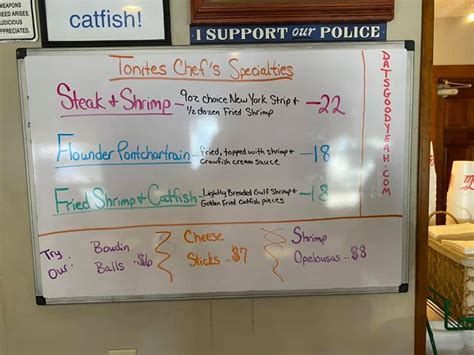 WEAPONS
NEED ARISES.
JUDICIOUS
APPRECIATED.
catfish!
I SUPPORT our POLICE
Tonites Chef's Specialties
Steak & Shrimp - 9oz choice New York Strip & - 22
1/2 dozen Fried Shrimp
Flounder Pontchartrain - fried, topped with shrimp & - 18
Crawfish cream sauce
Fried Shrimp & Catfish - Lightly Breaded Gulf Shrimp & - 18
Golden Fried Catfish pieces
DATSGOODYEAH.COM
Try Boudin Cheese Shrimp
Our: Balls ..$6 Sticks ..$7 Opelousas ..$8